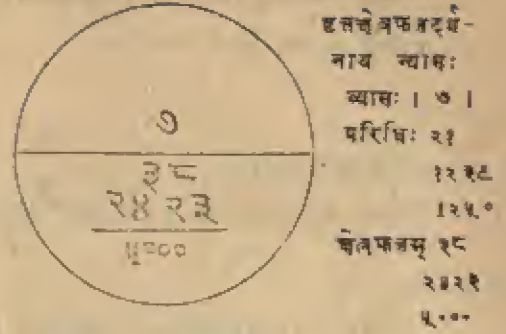 ७
३८
२४२३
५०००
वृत्तक्षेत्रफलदर्श-
नाय न्यासः
व्यासः । ७ ।
परिधिः २१
१२३९
१२५०
क्षेत्रफलम् ३८
२४२३
५०००